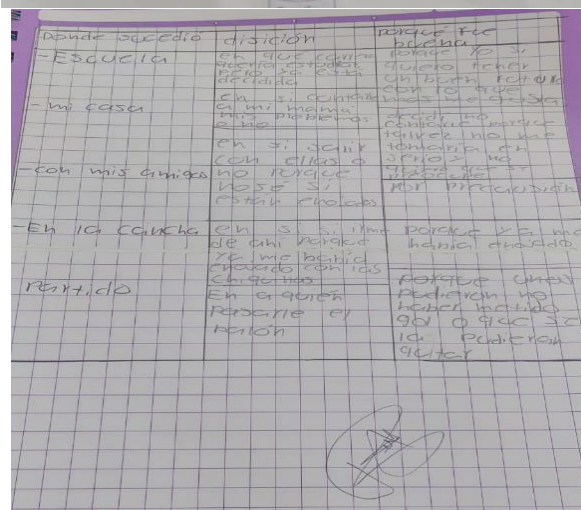 Donde sucedió disición porqué fue buena
- Escuela
en que carrera
queria estudiar
pero ya está
decidida
porque yo si
quiero tener
un buen futuro
con lo que
mas me gusta
- mi casa
en si contarle
a mi mamá
mis problemas
o no
decidi no
contarle porque
talvez no me
tomaria en
serio y no
quiero que se
- con mis amigas
en si salir
con ellas o
no porque
nosé si
están enojadas
Por precausión
- En la cancha
en si si irme
de ahi porque
ya me habia
enojado con las
chiquinas
porque ya me
habia enojado
Partido
En a quién
pasarle el
balón
porque unos
pudieran no
haber metido
gol o que se
la pudieran
quitar